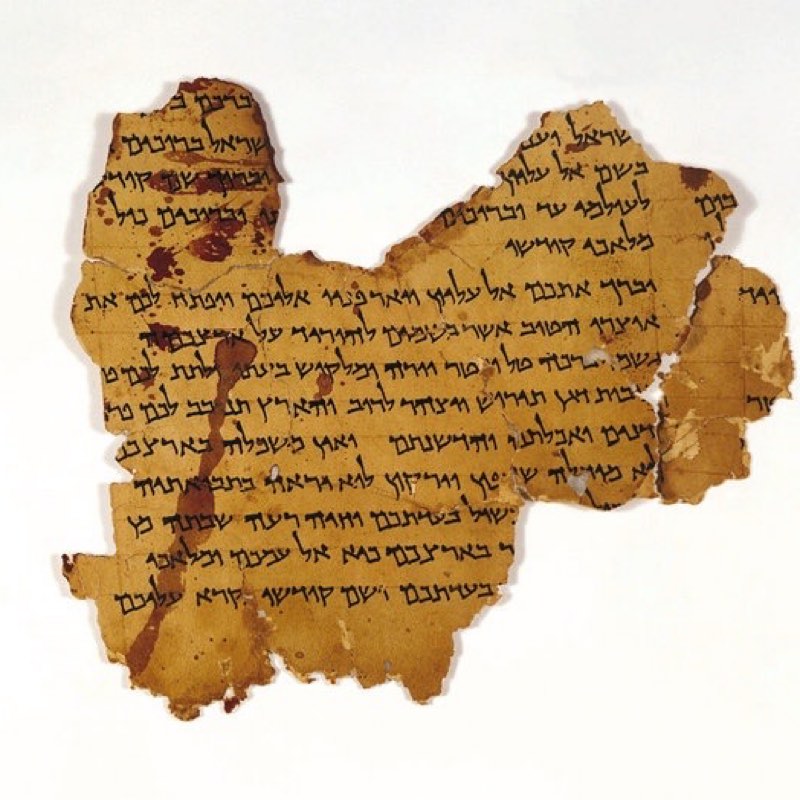 ברכם ב
שראל וענ שראל ברוכים
בשם אל עליון וברוך שם קודש
לעולמי עד וברוכים וברוכים כול
מלאכי קודשו
יברך אתכם אל עליון ויאר פניו אליכם ויפתח לכם את
אוצרו הטוב אשר בשמים להוריד על ארצכם
גשמי ברכה טל ומטר יורה ומלקוש בעתו ולתת לכם פ
נובות דגן תירוש ויצהר לרוב והארץ תנובב לכם פר
דנים ואכלתם והדשנתם ואין משכלה בארצכם
לא מוחלה שדפון וירקון לוא יראה בתבואתיה
שול בעדתכם וחיה רעה שבתה מן
ר בארצכם כיא אל עמכם ומלאכי
בעדתכם ושם קודשו נקרא עליכם